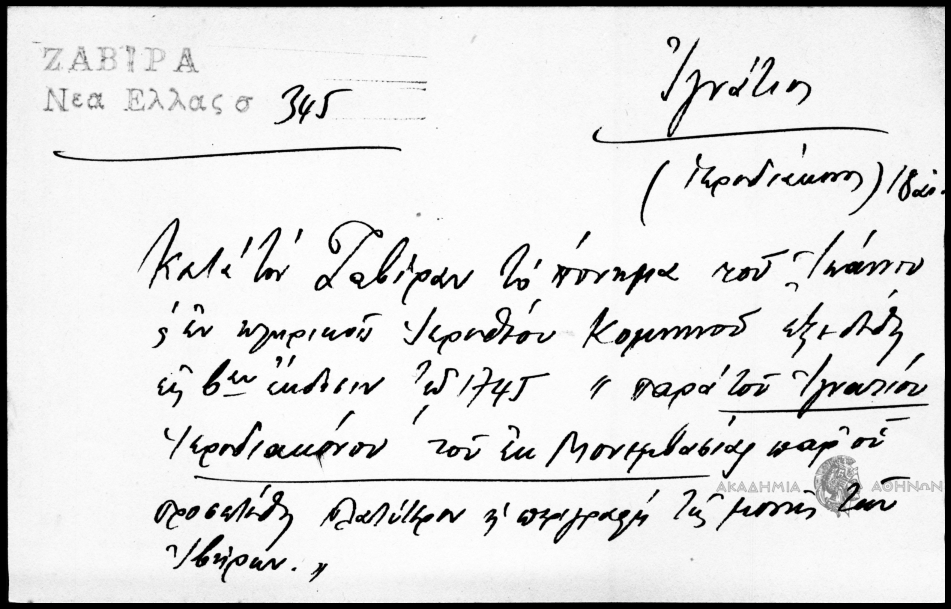 ΖΑΒΙΡΑ
Νεα Ελλας σ 345
Ἰγνάτιος
(ἱεροδιάκονος) 18 αἰ.
Κατὰ τὸν Ζαβίραν τὸ πόνημα τοῦ Ἰωάννου
ἐν κληρικοῖς Ἱεροθέου Κομνηνοῦ ἐξεδόθη
εἰς βαν ἔκδοσιν τῷ 1745 „ παρὰ τοῦ Ἰγνατίου
Ἱεροδιακόνου τοῦ ἐκ Μονεμβασίας παρ' οὗ
προσετέθη πλατύτερον ἡ περιγραφὴ τῆς μονῆς τῶν
Ἰβήρων. „
ΑΚΑΔΗΜΙΑ ΑΘΗΝΩΝ